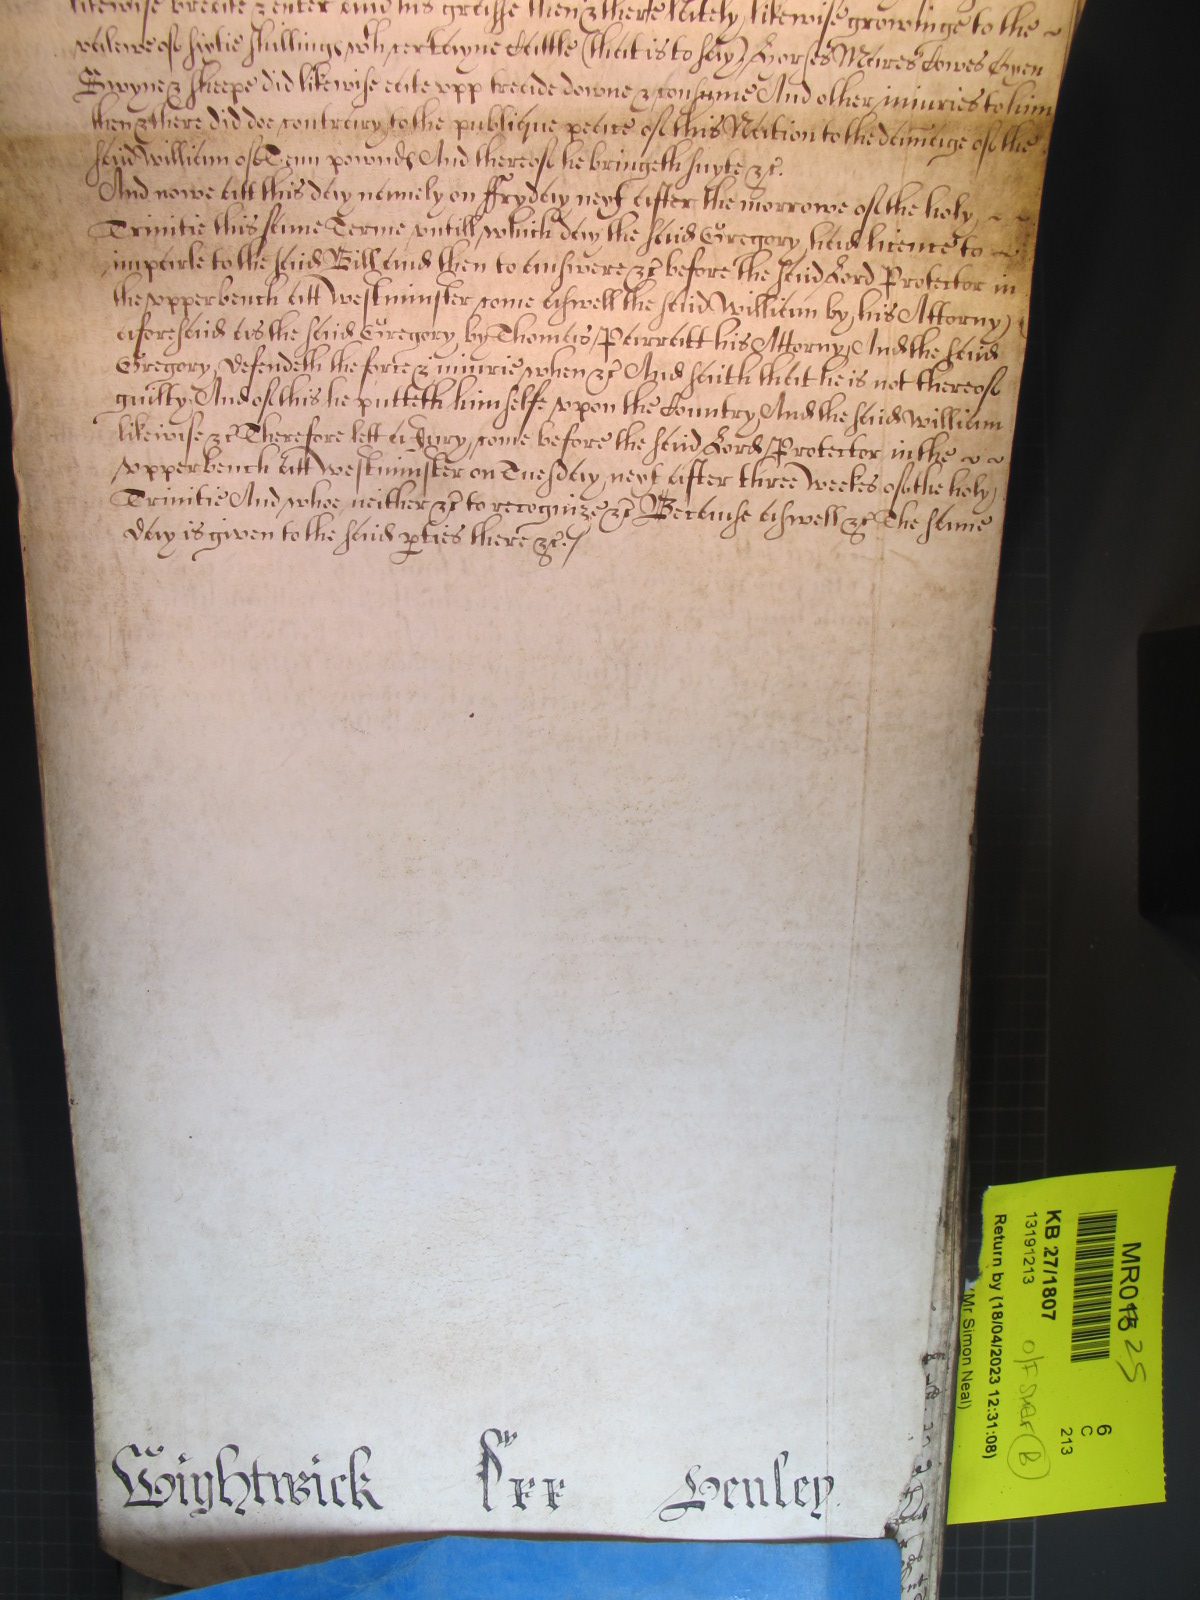 likewise breake & enter And his grasse then & there lately likewise growinge to the
valewe of sixtie shillings wth certayne Cattle (that is to say) Horses Mares Cowes Oxen
Swyne & sheepe did likewise eate vpp treade downe & consume And other iniuries to him
then & there did doe contrary to the publique peace of this Nation to the damage of the
said William of Tenn pownds And thereof he bringeth suyte &c.
And nowe att this day namely on ffryday next after the morrowe of the holy
Trinitie this same Terme vntill which day the said Gregory had licence to
imparle to the said Bill and then to answere &c before the said Lord Protector in
the vpper bench att Westminster come aswell the said William by his Attorny
aforesaid as the said Gregory by Thomas Parratt his Attorny And the said
Gregory defendeth the force & iniurie when &c And saith that he is not thereof
guilty And of this he putteth himselfe vpon the Country And the said William
likewise &c Therefore lett a Jury come before the said Lord Protector in the
vpper bench att Westminster on Tuesday next after three weekes of the holy
Trinitie And whoe neither &c to recognize &c Because aswell &c The same
day is given to the said pties there &c./
Wightwick Henley
MR01 25
6
C
213
KB 27/1807
13191213
Return by (18/04/2023 12:31:08)
(Mr Simon Neal)
B